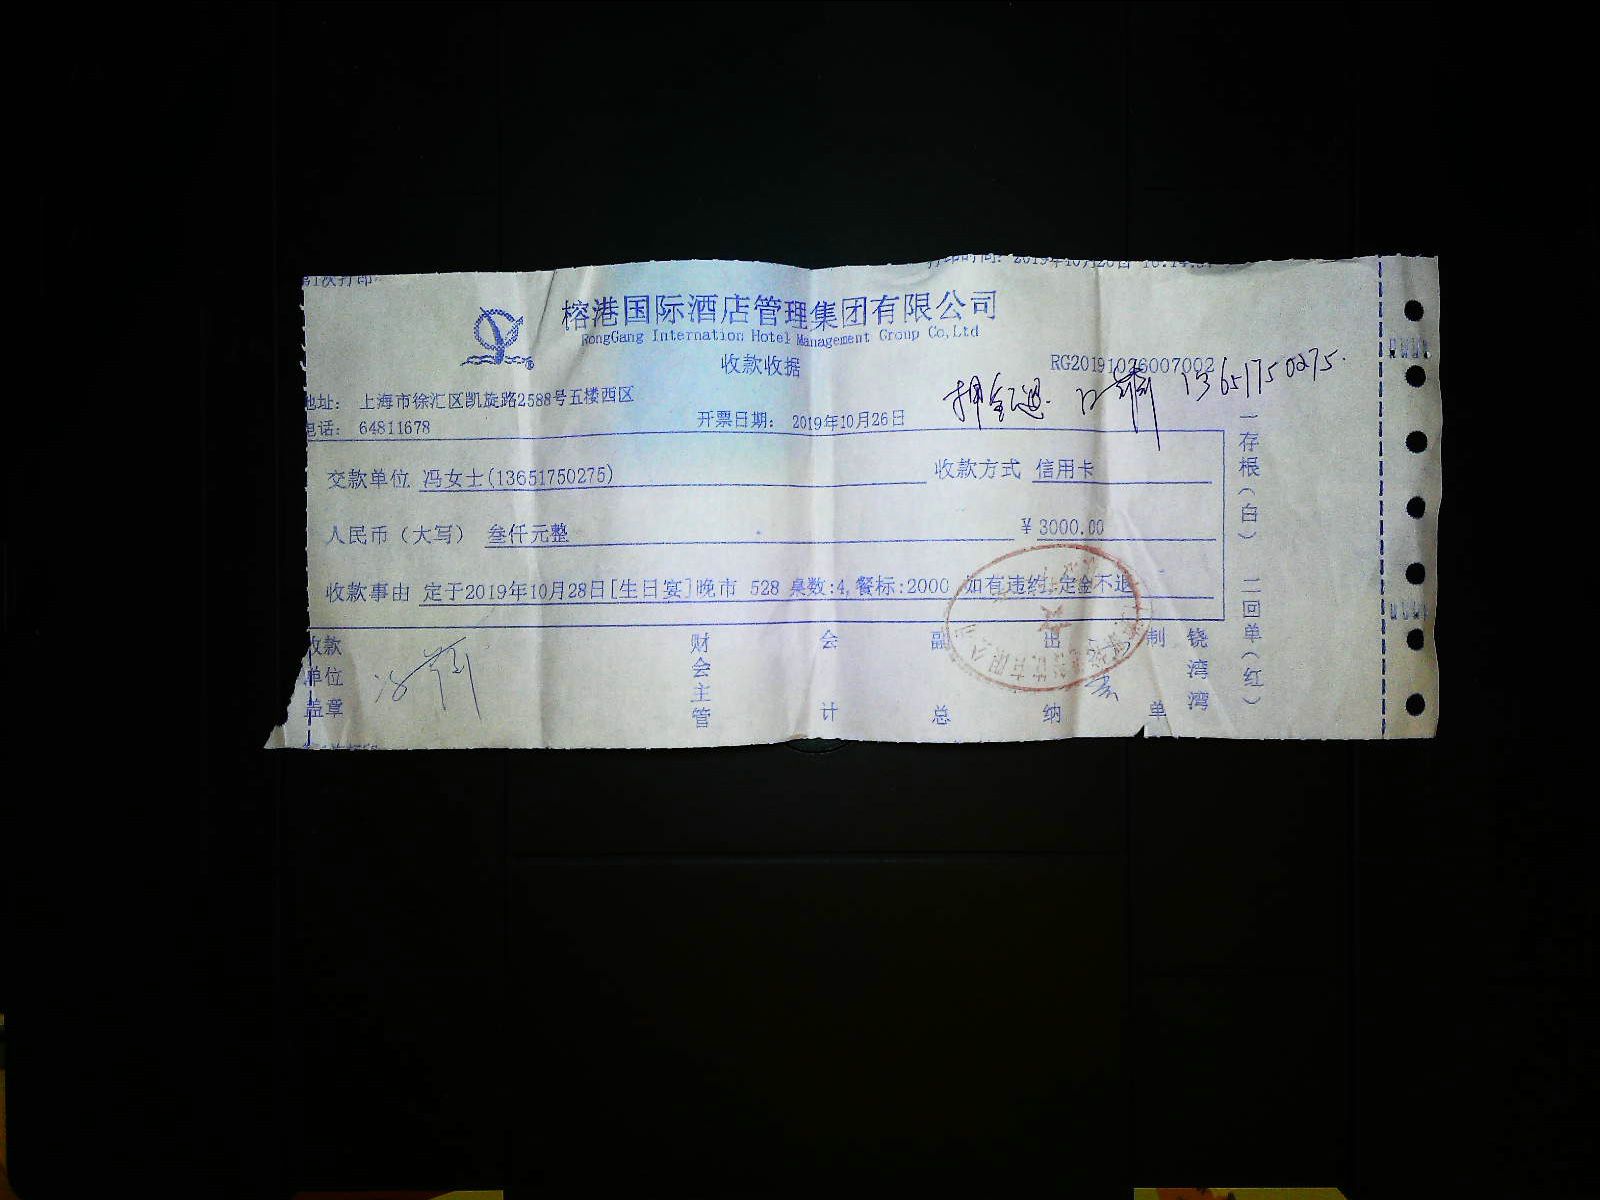 第1次打印
打印时间: 2019年10月26日
榕港国际酒店管理集团有限公司
RongGang Internation Hotel Management Group Co,Ltd
收款收据
RG20191026007002
押金退 13651750275.
地址: 上海市徐汇区凯旋路2588号五楼西区
电话: 64811678
开票日期: 2019年10月26日
交款单位 冯女士(13651750275) 收款方式 信用卡
人民币（大写） 叁仟元整 ¥ 3000.00
收款事由 定于2019年10月28日[生日宴]晚市 528 桌数:4,餐标:2000 如有违约,定金不退
收款单位盖章
财会主管
会计
副总
出纳
制单
饶湾湾
一存根(白) 二回单(红)